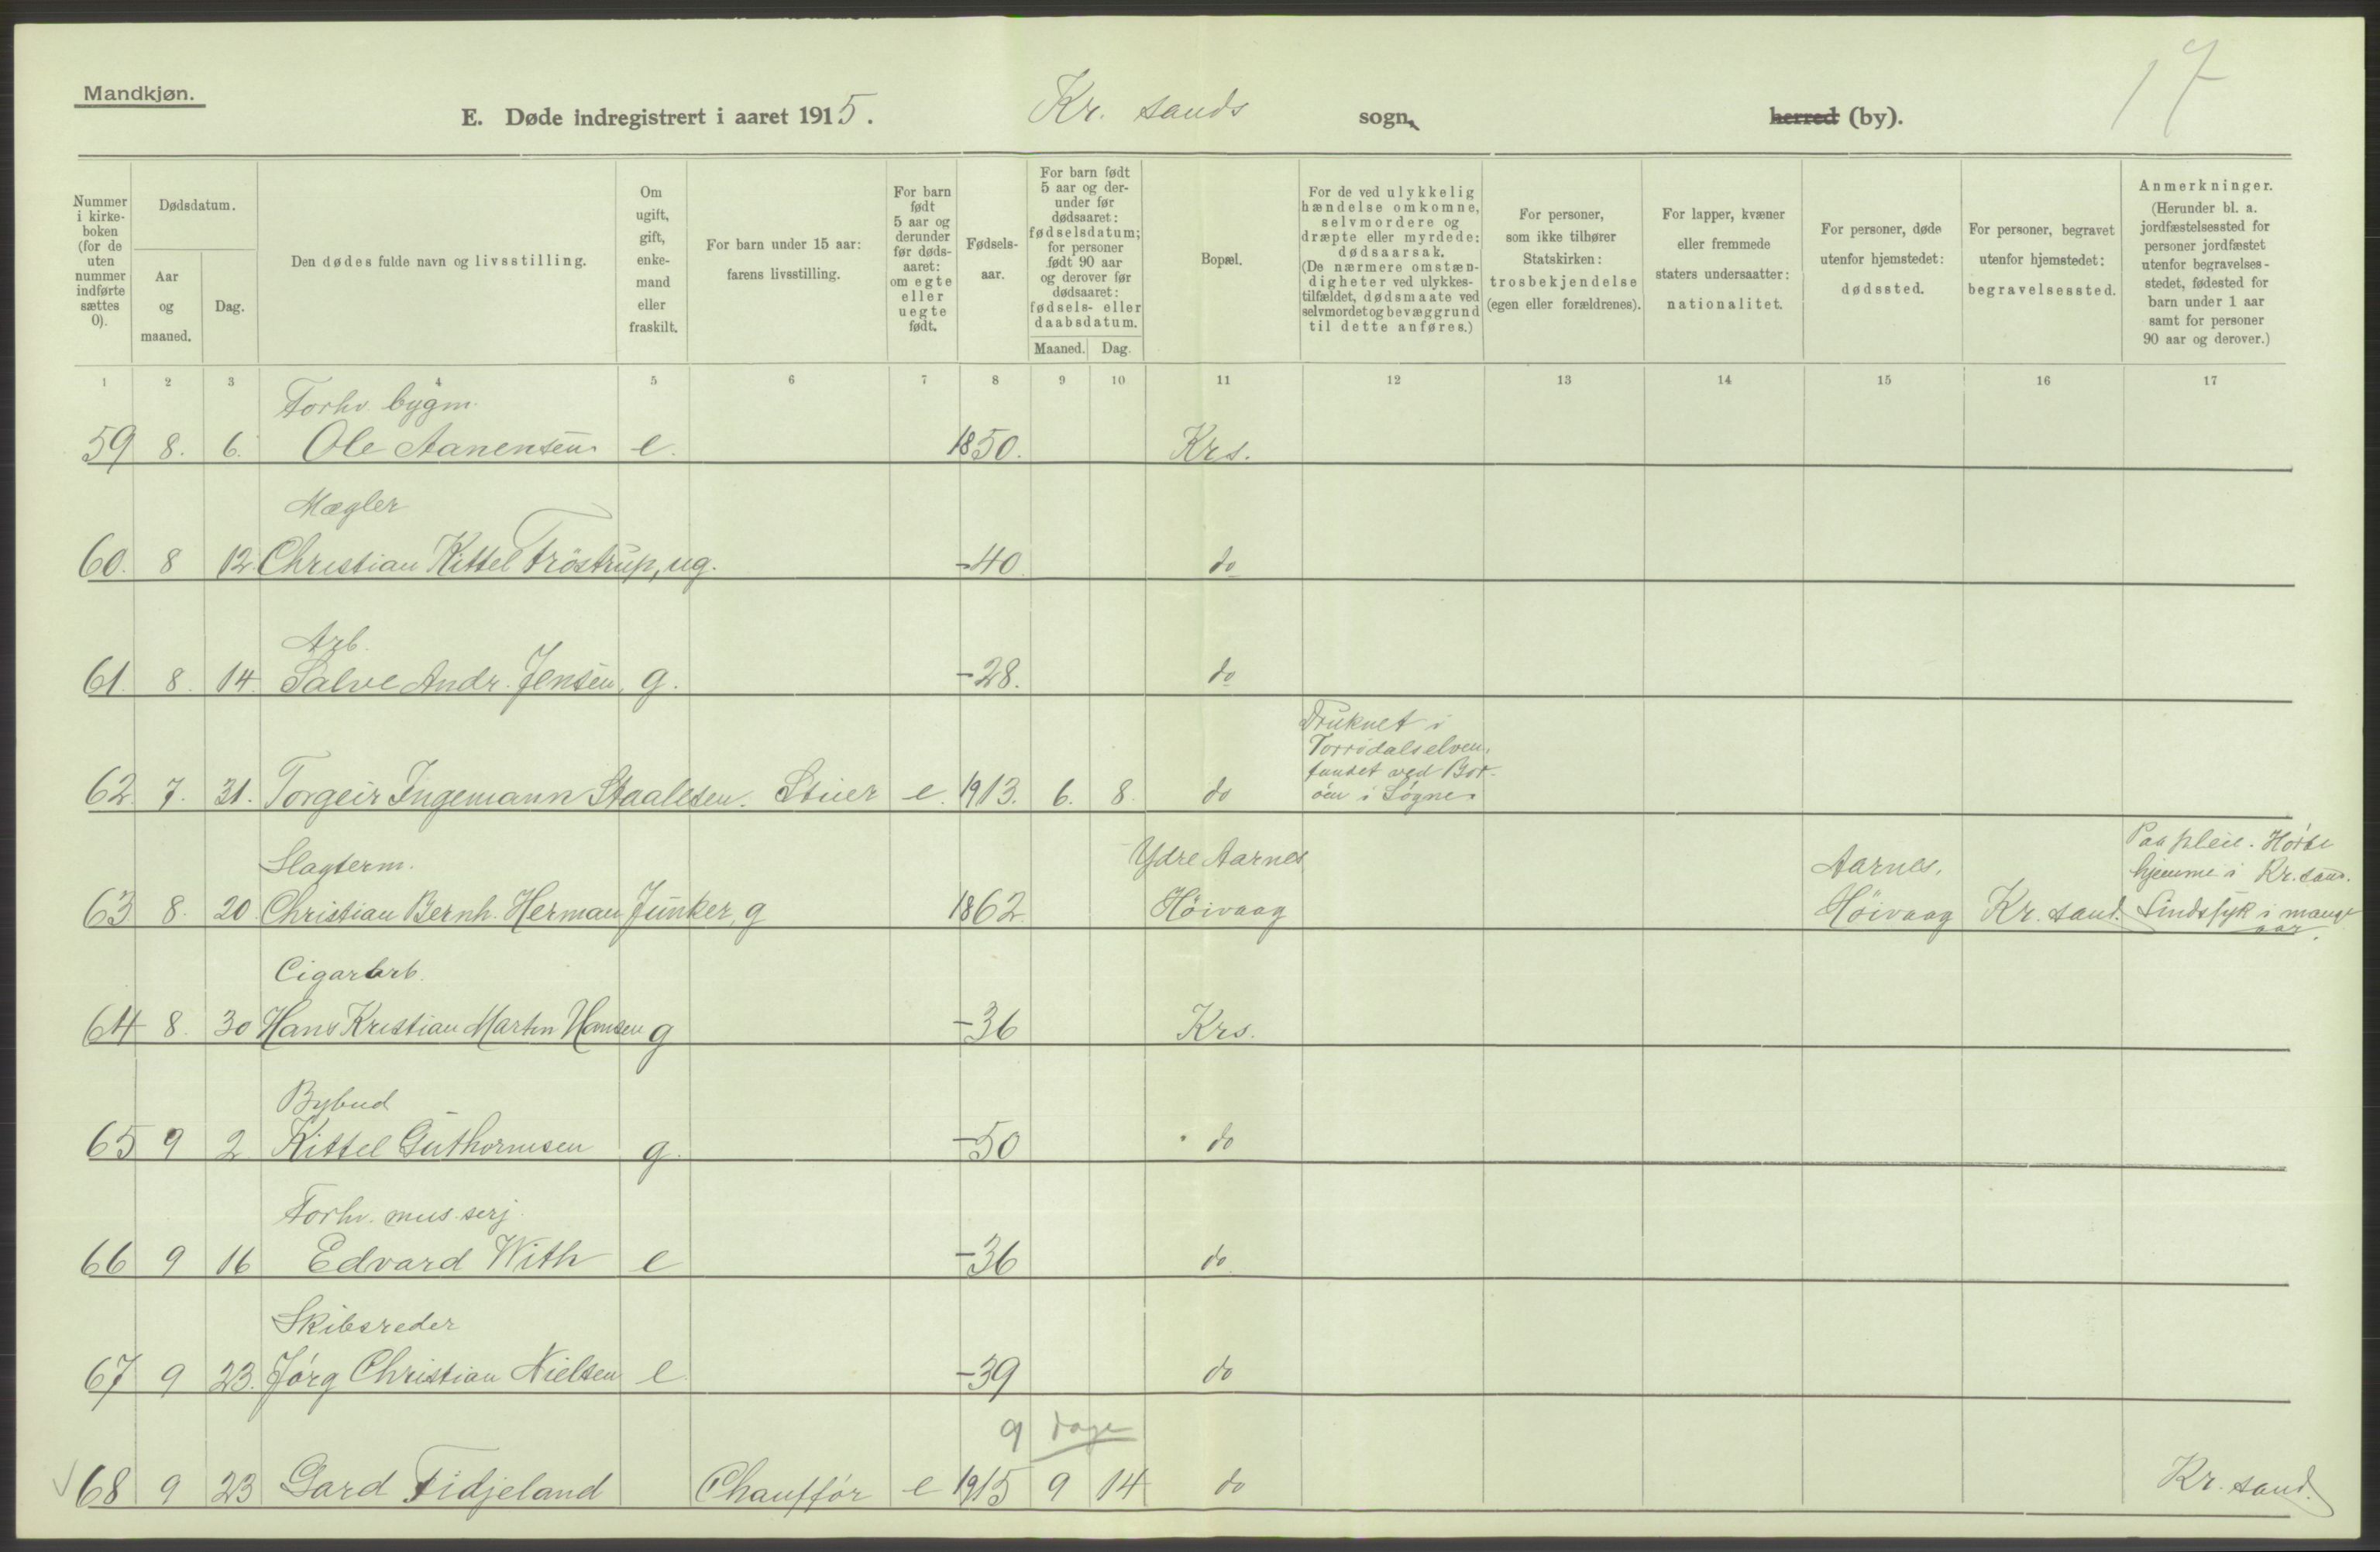 Mandkjøn.
17
E. Døde indregistrert i aaret 1915. Kr. sands sogn, herred (by).
Nummer i kirke-boken (for de uten nummer indførte sættes 0).
Dødsdatum.
Aar og maaned.
Dag.
Den dødes fulde navn og livsstilling.
Om ugift, gift, enke-mand eller fraskilt.
For barn under 15 aar: farens livsstilling.
For barn født 5 aar og derunder før døds-aaret: om egte eller uegte født.
Fødsels-aar.
For barn født 5 aar og der-under før dødsaaret: fødselsdatum; for personer født 90 aar og derover før dødsaaret: fødsels- eller daabsdatum.
Maaned. Dag.
Bopæl.
For de ved ulykkelig hændelse omkomne, selvmordere og dræpte eller myrdede: dødsaarsak. (De nærmere omstæn-digheter ved ulykkes-tilfældet, dødsmaate ved selvmordet og bevæggrund til dette anføres.)
For personer, som ikke tilhører Statskirken: trosbekjendelse (egen eller forældrenes).
For lapper, kvæner eller fremmede staters undersaatter: nationalitet.
For personer, døde utenfor hjemstedet: dødssted.
For personer, begravet utenfor hjemstedet: begravelsessted.
Anmerkninger. (Herunder bl. a. jordfæstelsessted for personer jordfæstet utenfor begravelses-stedet, fødested for barn under 1 aar samt for personer 90 aar og derover.)
1 2 3 4 5 6 7 8 9 10 11 12 13 14 15 16 17
Forhv. bygm.
59 8. 6. Ole Aanensen e. 1850. Krs.
Mægler
60. 8 12. Christian Kittel Tröstrup, ug. -40 do
Arb.
61. 8. 14. Salve Andr. Jensen, g. -28. do
Druknet i
Torridalselven,
fundet ved Bor-
62. 7. 31. Torgeir Ingemann Staalesen. Stuer e. 1913. 6. 8. do öen i Søgne.
Paa pleie. Hørte
Slagterm. Ydre Aarnes Aarnes, hjemme i Kr.sand.
63 8. 20. Christian Bernh. Herman Junker, g 1862. Höivaag Höivaag Kr. sand. Sindssyk i mange
aar.
Cigararb.
64 8. 30 Hans Kristian Martin Hansen g -36 Krs.
Bybud
65 9 2 Kittel Guthormsen g. -50 do
Forhv. mus. serj.
66 9 16 Edvard With e -36 do
Skibsreder
67 9 23. Jörg Christian Nielsen e. -39 do
9 dage
68 9 23 Gard Fidjeland Chaufför e 1915 9 14 do Kr. sand.